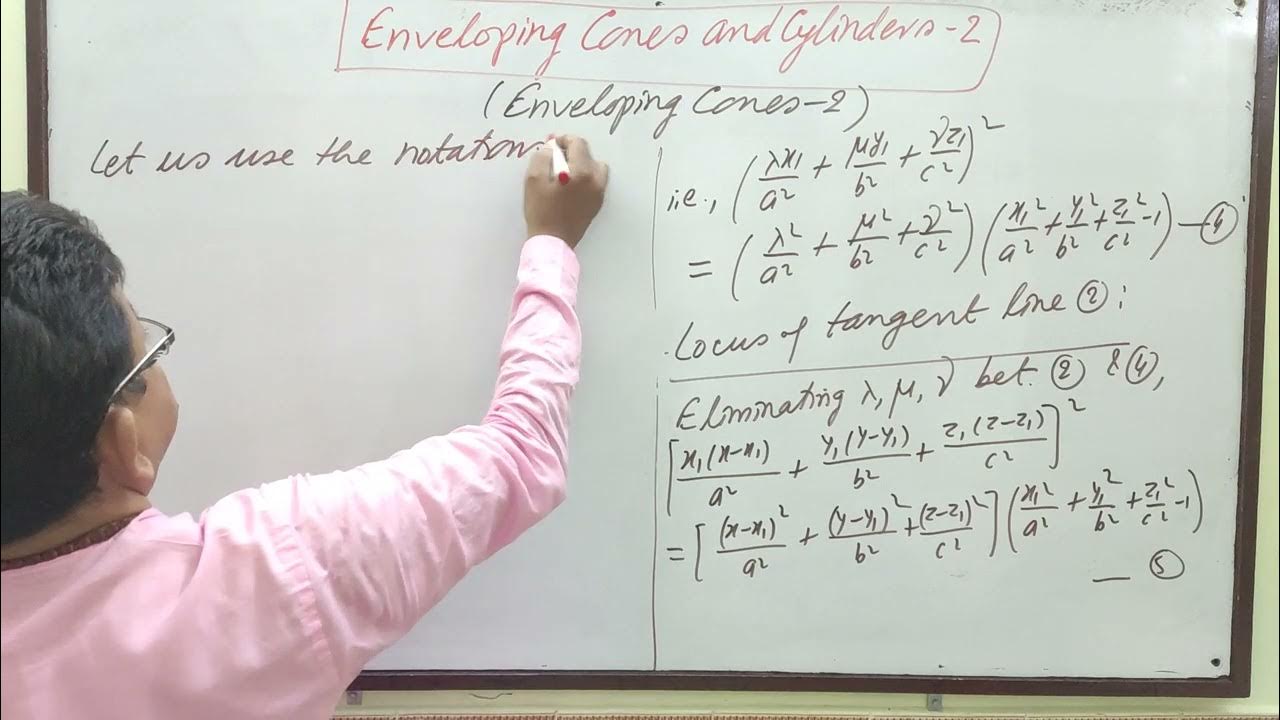 Enveloping Cones and Cylinders-2
(Enveloping Cones-2)
Let us use the notation
i.e., (λx₁/a² + μy₁/b² + νz₁/c²)²
= (λ²/a² + μ²/b² + ν²/c²) (x₁²/a² + y₁²/b² + z₁²/c² - 1) — ④
Locus of tangent line ②:
Eliminating λ, μ, ν bet. ② & ④,
[x₁(x-x₁)/a² + y₁(y-y₁)/b² + z₁(z-z₁)/c²]²
= [(x-x₁)²/a² + (y-y₁)²/b² + (z-z₁)²/c²] (x₁²/a² + y₁²/b² + z₁²/c² - 1)
— ⑤